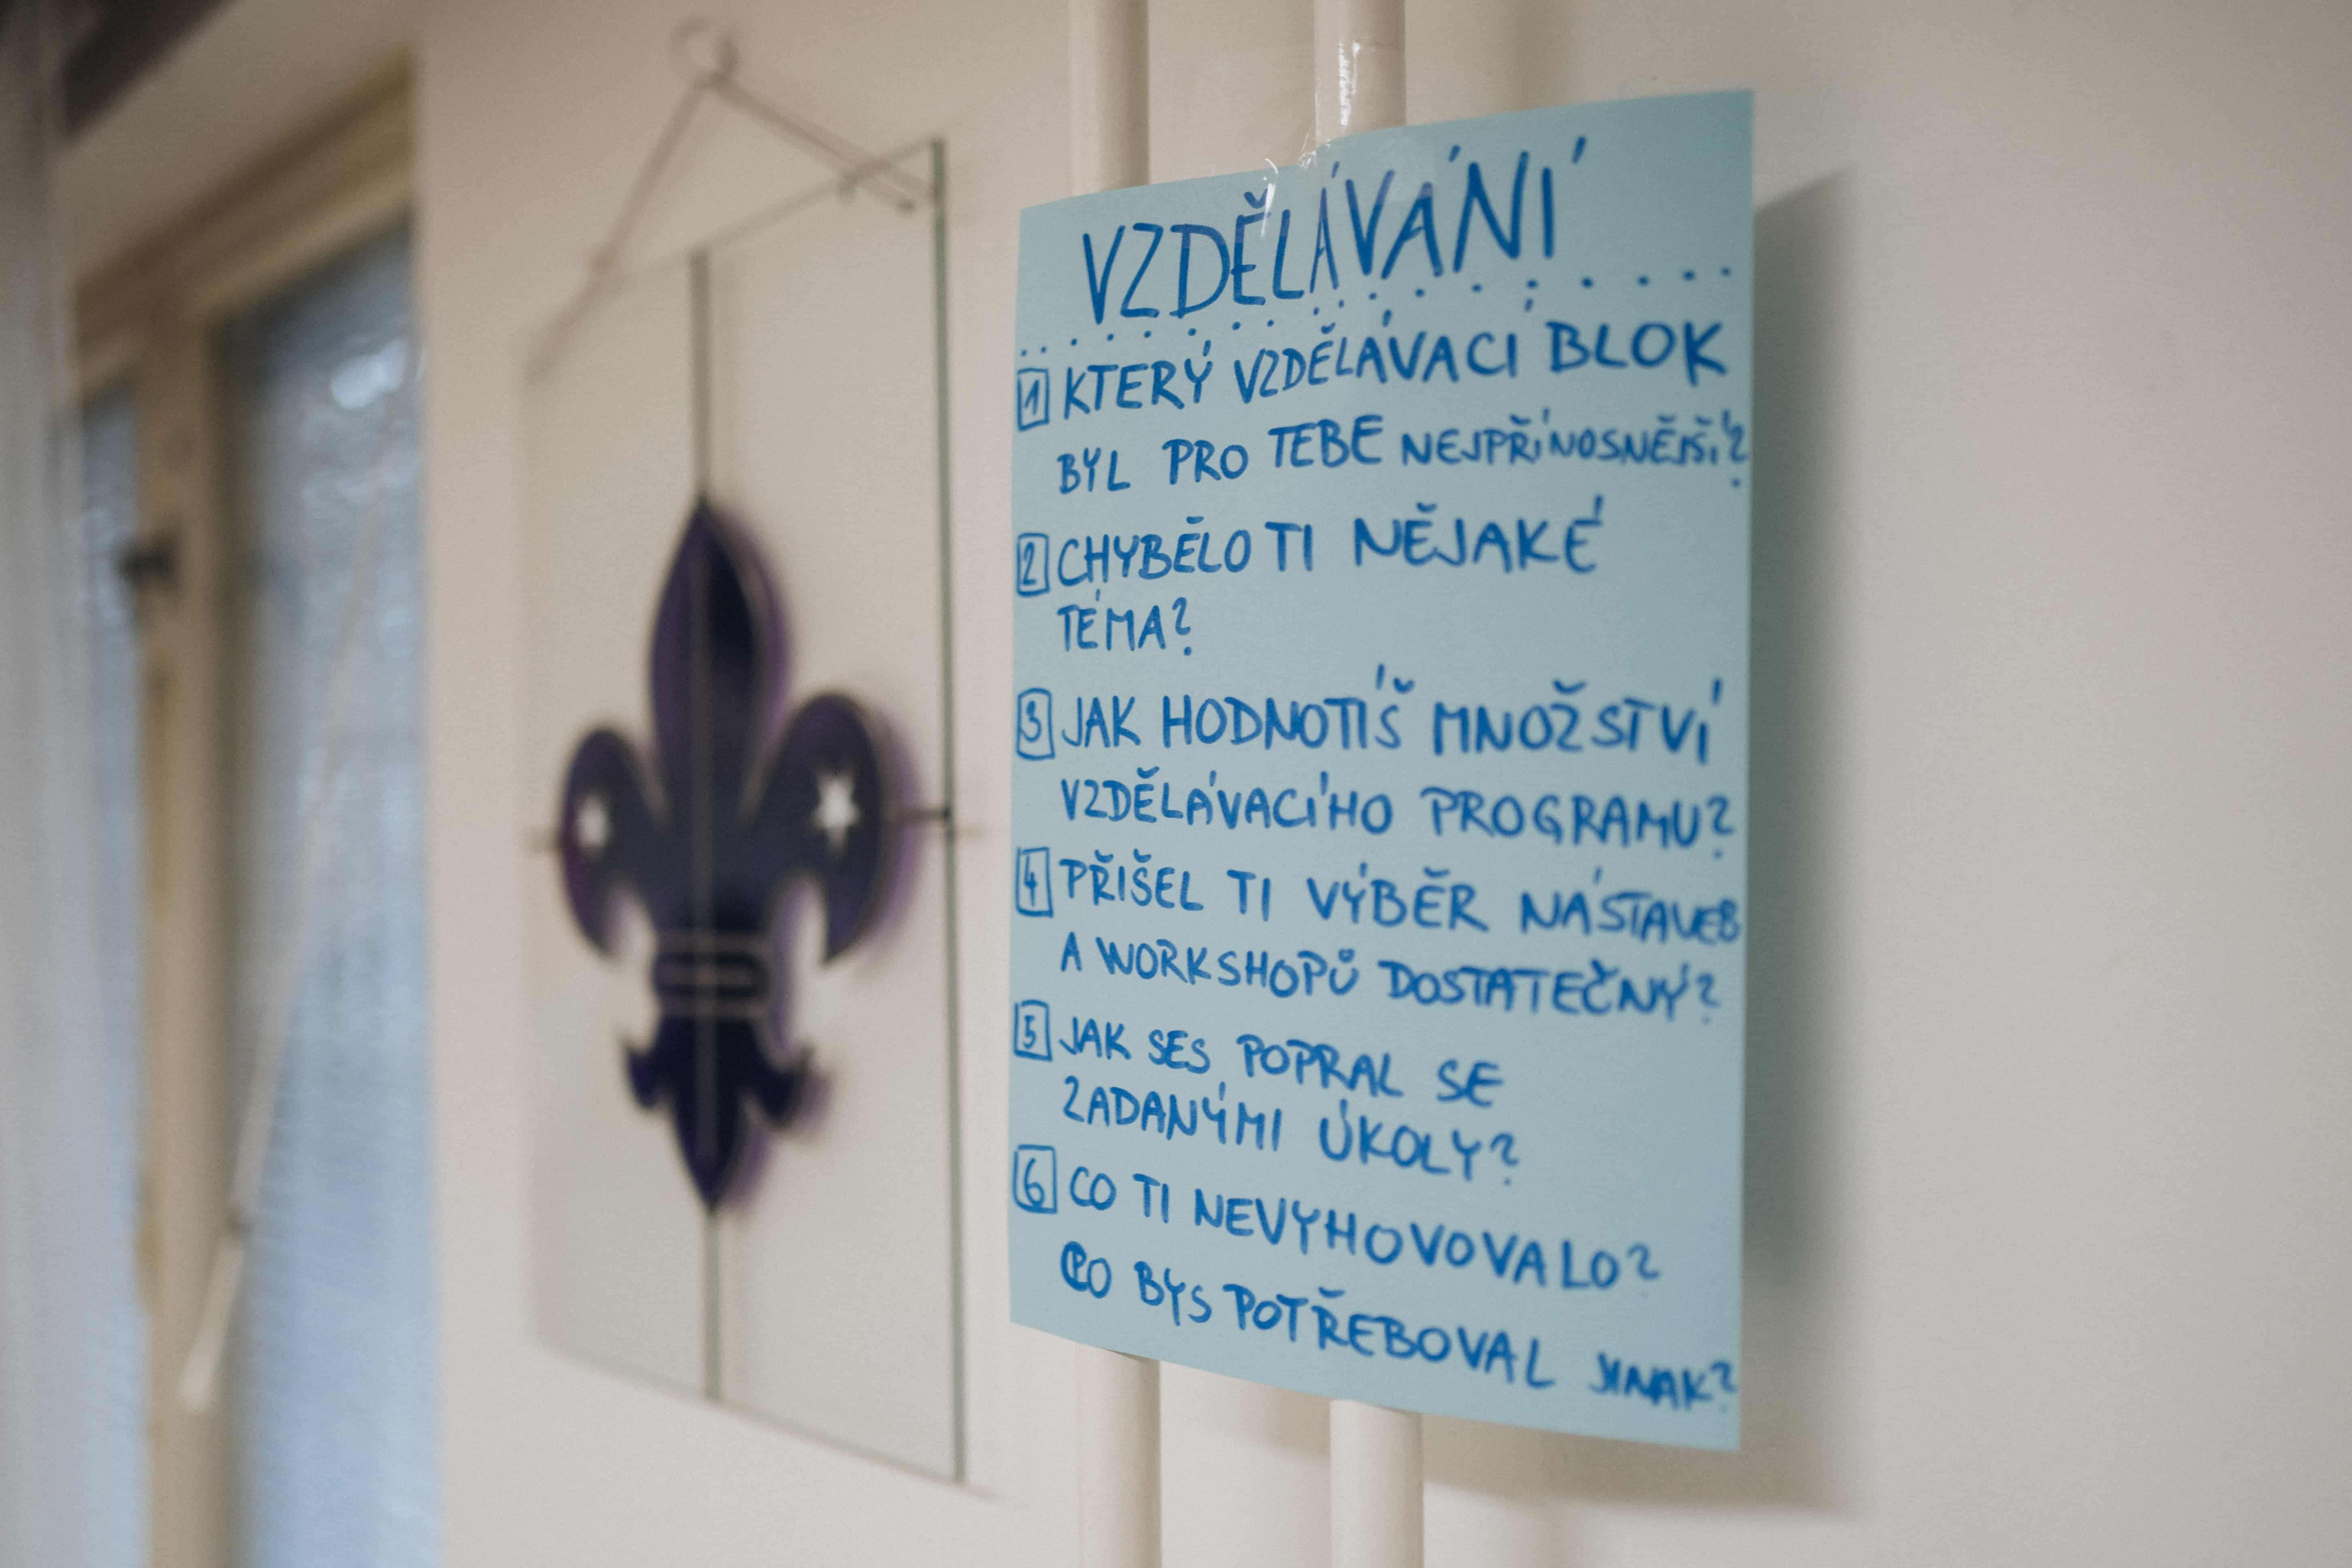 VZDĚLÁVÁNÍ
1 KTERÝ VZDĚLÁVACÍ BLOK
BYL PRO TEBE NEJPŘÍNOSNĚJŠÍ?
2 CHYBĚLO TI NĚJAKÉ
TÉMA?
3 JAK HODNOTÍŠ MNOŽSTVÍ
VZDĚLÁVACÍHO PROGRAMU?
4 PŘIŠEL TI VÝBĚR NÁSTAVEB
A WORKSHOPŮ DOSTATEČNÝ?
5 JAK SES POPRAL SE
ZADANÝMI ÚKOLY?
6 CO TI NEVYHOVOVALO?
CO BYS POTŘEBOVAL JINAK?